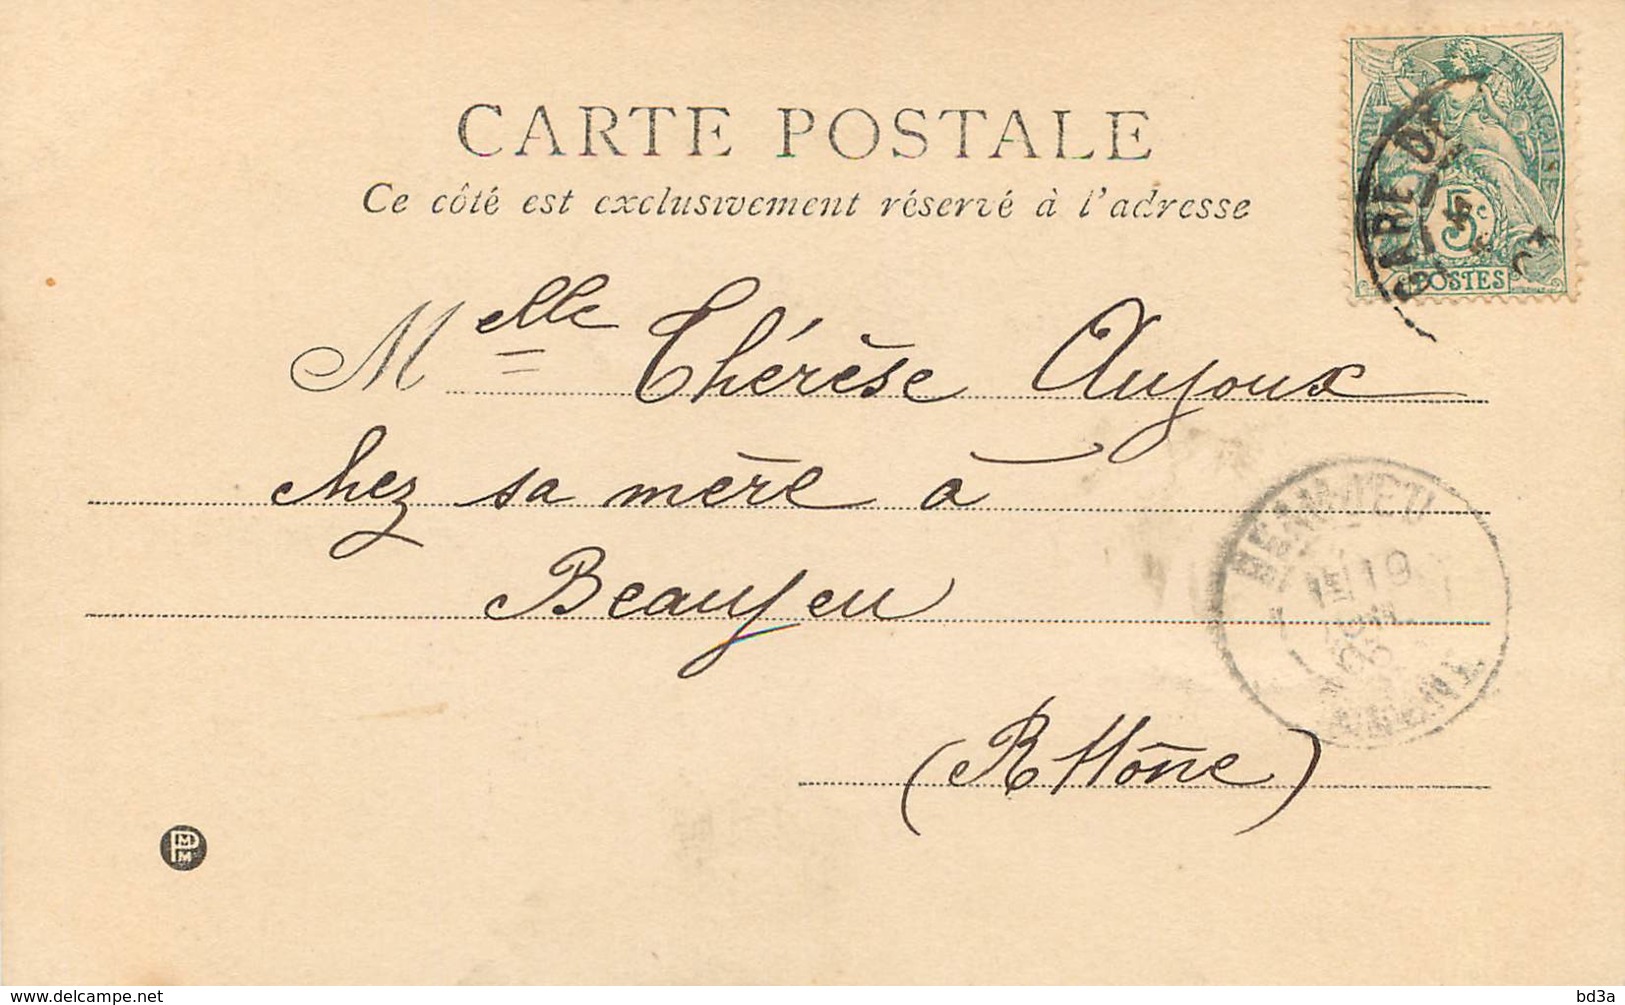 CARTE POSTALE
Ce côté est exclusivement réservé à l'adresse
FRANÇAISE
5c
POSTES
GARE DE
Melle Thérèse Aujoux
chez sa mère à
Beaujeu
(Rhône)
BEAUJEU
19
RHONE
PMM
www.delcampe.net
bd3a